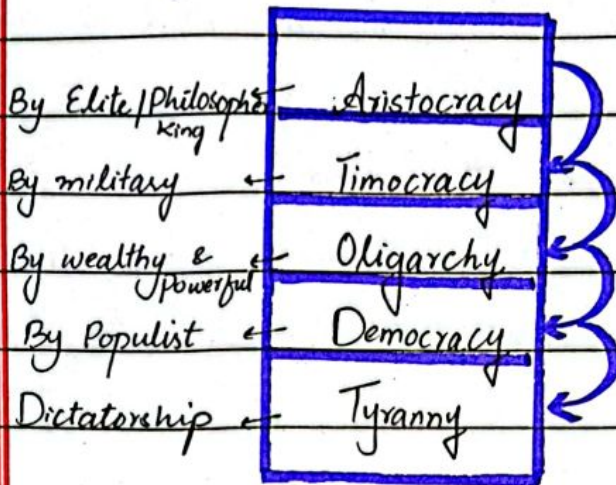 By Elite/Philosopher King Aristocracy
By military Timocracy
By wealthy & Powerful Oligarchy
By Populist Democracy
Dictatorship Tyranny